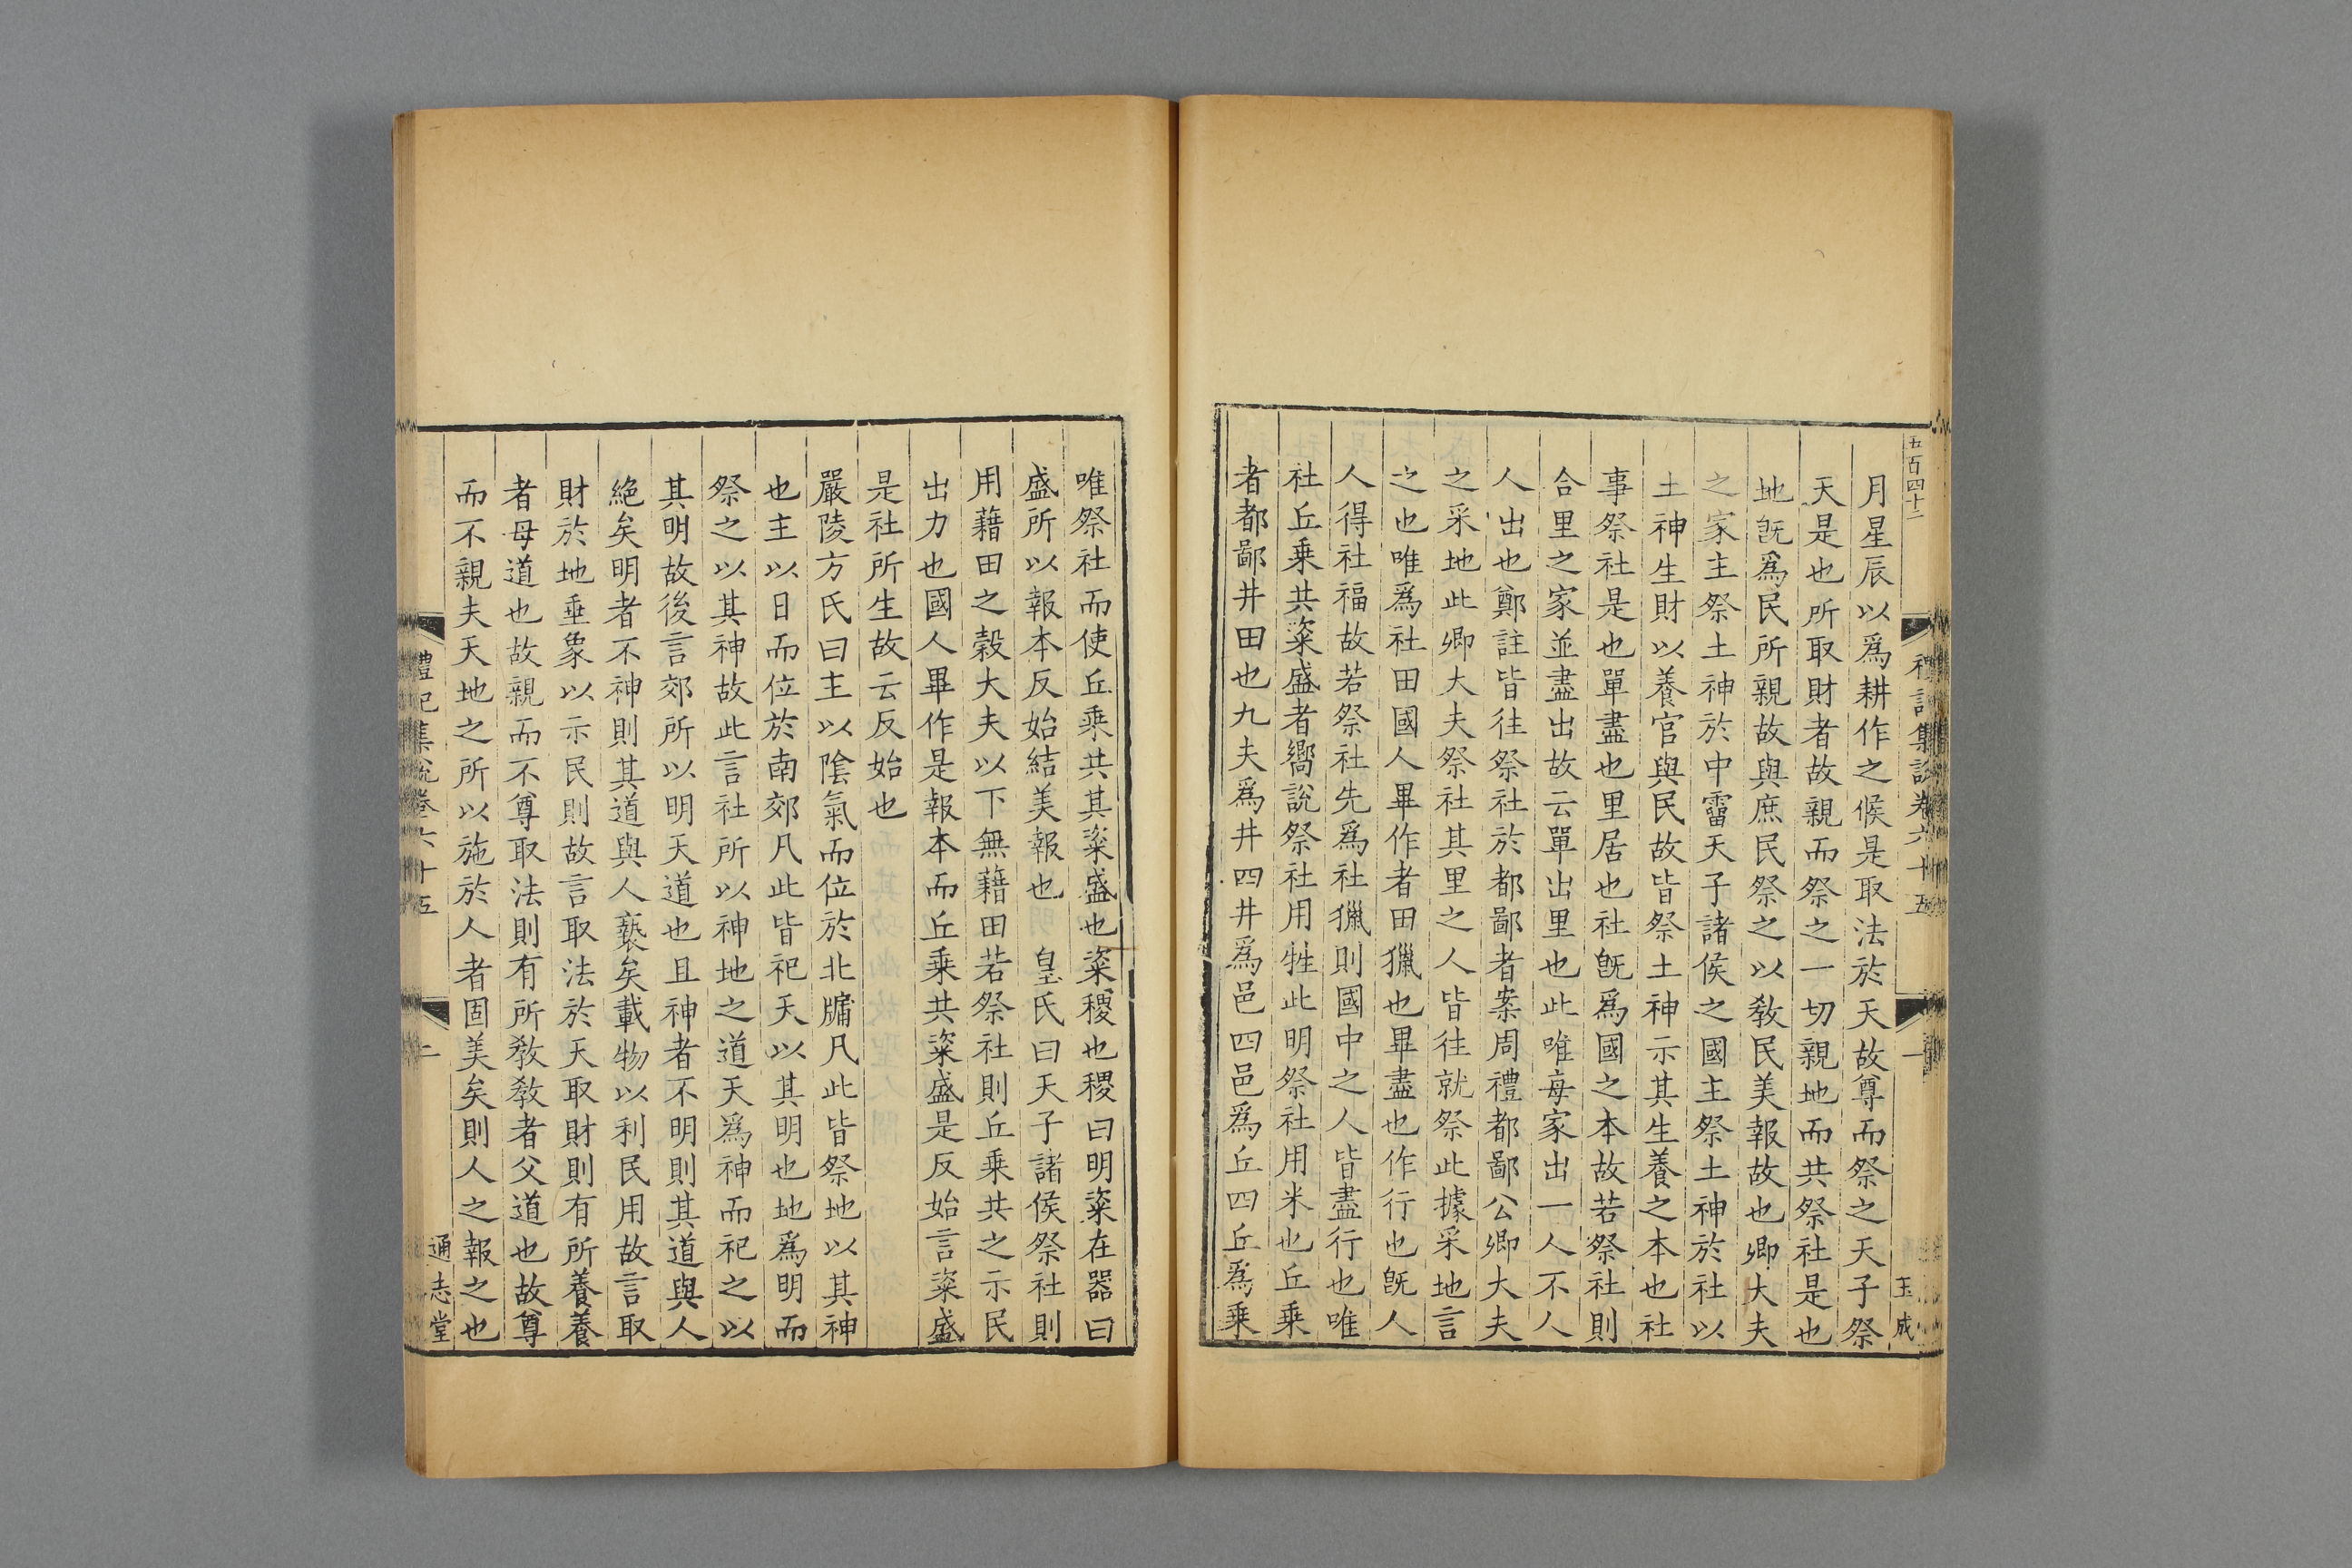 五百四十二
禮記集說卷六十五
一
玉成
月星辰以爲耕作之候是取法於天故尊而祭之天子祭
天是也所取財者故親而祭之一切親地而共祭社是也
地旣爲民所親故與庶民祭之以敎民美報故也卿大夫
之家主祭土神於中霤天子諸侯之國主祭土神於社以
土神生財以養官與民故皆祭土神示其生養之本也社
事祭社是也單盡也里居也社旣爲國之本故若祭社則
合里之家並盡出故云單出里也此唯每家出一人不人
人出也鄭註皆往祭社於都鄙者案周禮都鄙公卿大夫
之采地此卿大夫祭社其里之人皆往就祭此據采地言
之也唯爲社田國人畢作者田獵也畢盡也作行也旣人
人得社福故若祭社先爲社獵則國中之人皆盡行也唯
社丘乗共粢盛者嚮說祭社用牲此明祭社用米也丘乗
者都鄙井田也九夫爲井四井爲邑四邑爲丘四丘爲乗
唯祭社而使丘乗共其粢盛也粢稷也稷曰明粢在器曰
盛所以報本反始結美報也　皇氏曰天子諸侯祭社則
用藉田之穀大夫以下無藉田若祭社則丘乗共之示民
出力也國人畢作是報本而丘乗共粢盛是反始言粢盛
是社所生故云反始也
嚴陵方氏曰主以陰氣而位於北牖凡此皆祭地以其神
也主以日而位於南郊凡此皆祀天以其明也地爲明而
祭之以其神故此言社所以神地之道天爲神而祀之以
其明故後言郊所以明天道也且神者不明則其道與人
絶矣明者不神則其道與人褻矣載物以利民用故言取
財於地垂象以示民則故言取法於天取財則有所養養
者母道也故親而不尊取法則有所敎敎者父道也故尊
而不親夫天地之所以施於人者固美矣則人之報之也
禮記集說卷六十五
二
通志堂